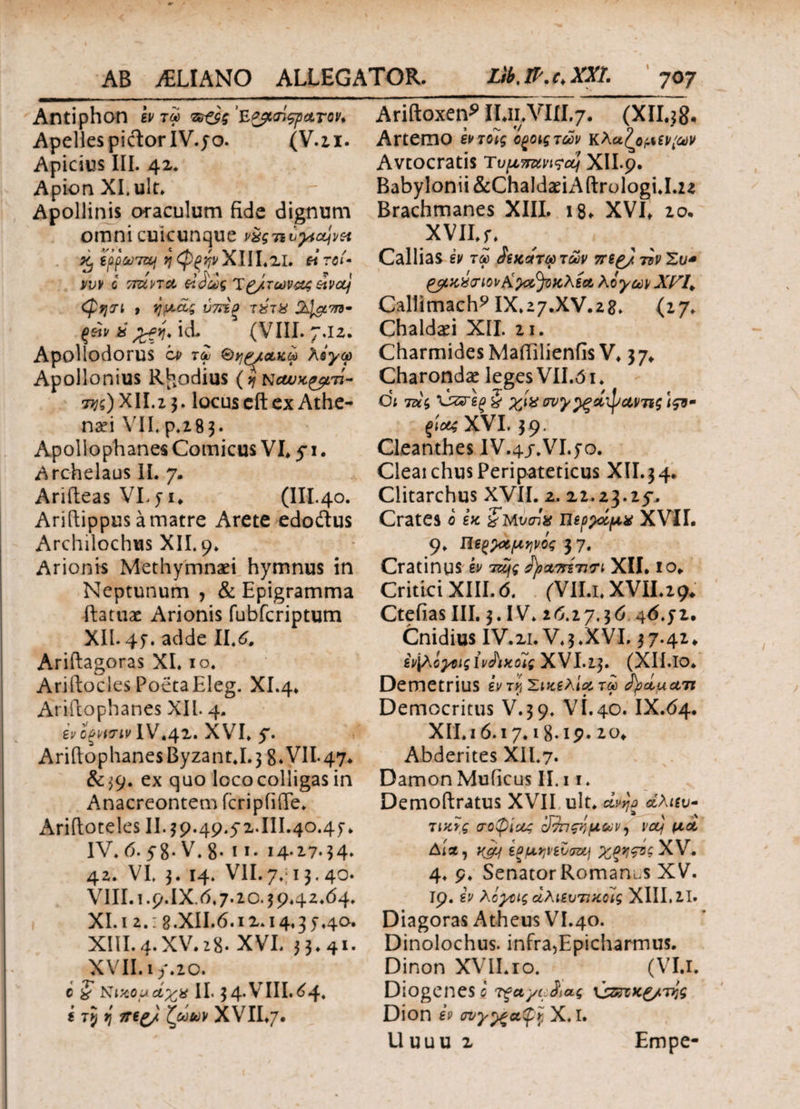 AB ÆLIANO ALLEGATOR. Lib. IV. c. XXI. 707
Antiphon ἐν τῷ πρὸς Ἐρασίστρατον.
Apelles pictor IV.50. (V.21.
Apicius III. 42.
Apion XI. ult.
Apollinis oraculum fide dignum
omni cuicunque
XIII.21.
φησι, ἡμᾶς ὑπὲρ τούτου
id. (VIII. 7.12.
Apollodorus ἐν τῷ Θηριακῷ λόγῳ
Apollonius Rhodius (ἢ Ναυκρατί-
της) XII.23. locus est ex Athe-
næi VII. p.283.
Apollophanes Comicus VI. 51.
Archelaus II. 7.
Aristeas VI.51. (III.40.
Aristippus à matre Arete edoctus
Archilochus XII.9.
Arionis Methymnæi hymnus in
Neptunum , & Epigramma
statuæ Arionis subscriptum
XII. 45. adde II.6.
Aristagoras XI. 10.
Aristocles Poëta Eleg. XI.4.
Aristophanes XII. 4.
ἐν ὄρνισιν IV.42. XVI. 5.
Aristophanes Byzant.I.38.VII.47.
&39. ex quo loco colligas in
Anacreontem scripsisse.
Aristoteles II.39.49.52.III.40.45.
IV. 6. 58. V. 8. 11. 14.27.34.
42. VI. 3. 14. VII.7.13.40.
VIII.1.9.IX.6.7.20.39.42.64.
XI.12.: 8.XII.6.12.14.35.40.
XIII.4.XV.28. XVI. 33.41.
XVII.15.20.
ὁ τοῦ Νικομάχου II.34.VIII.64.
ἐ τῇ ἢ περὶ ζώων XVII.7.
Aristoxenꝰ II.11.VIII.7. (XII.38.
Artemo ἐν τοῖς ὅροις τῶν κλαζομενίων
Avtocratis Τυμπανισταὶ XII.9.
Babylonii & Chaldæi Astrologi.I.22
Brachmanes XIII. 18. XVI. 20.
XVII.5.
Callias ἐν τῷ δεκάτῳ τῶν περὶ τὸν Συ-
ρακούσιον Ἀγαθοκλέα λόγων XVI.
Callimachꝰ IX.27.XV.28. (27.
Chaldæi XII. 21.
Charmides Massiliensis V. 37.
Charondæ leges VII.61.
Οἱ τὰς ὑπὲρ τοῦ χίου συγγράψαντες ἱστο-
ρίας XVI. 39.
Cleanthes IV.45.VI.50.
Clearchus Peripateticus XII.34.
Clitarchus XVII. 2. 22.23.25.
Crates ὁ ἐκ τοῦ Μυσίου Περγάμου XVII.
9. Περγαμηνός 37.
Cratinus ἐν ταῖς δραπέτισι XII. 10.
Critici XIII.6. (VII.1.XVII.29.
Ctesias III. 3. IV. 26.27.36.46.52.
Cnidius IV.21. V.3.XVI. 37.42.
ἐν λόγοις ἰνδικοῖς XVI.23. (XII.10.
Demetrius ἐν τῇ Σικελίᾳ τῷ δράματι
Democritus V.39. VI.40. IX.64.
XII.16.17.18.19.20.
Abderites XII.7.
Damon Musicus II.11.
Demostratus XVII. ult. ἀνὴρ ἁλιευ-
τικῆς σοφίας ἐπιστήμων, ναὶ μὰ
Δία, καὶ ἑρμηνεῦσαι χρηστὸς XV.
4. 9. Senator Romanus XV.
19. ἐν λόγοις ἁλιευτικοῖς XIII.21.
Diagoras Atheus VI.40.
Dinolochus. infra,Epicharmus.
Dinon XVII.10. (VI.1.
Diogenes ὁ τραγῳδίας ὑποκριτὴς
Dion ἐν συγγραφῇ X.1.
Uuuu 2 Empe-